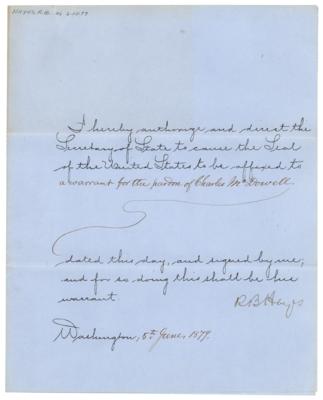 HAYES, R.B.
I hereby authorize and direct the
Secretary of State to cause the Seal
of the United States to be affixed to
a warrant for the pardon of Charles McDowell.
dated this day, and signed by me;
and for so doing this shall be his
warrant.
R B Hayes
Washington, 5th June, 1879.